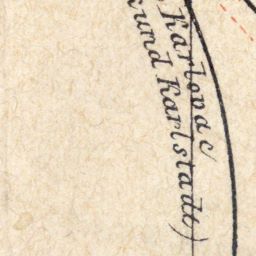 Karlovac
und Karlstadt)